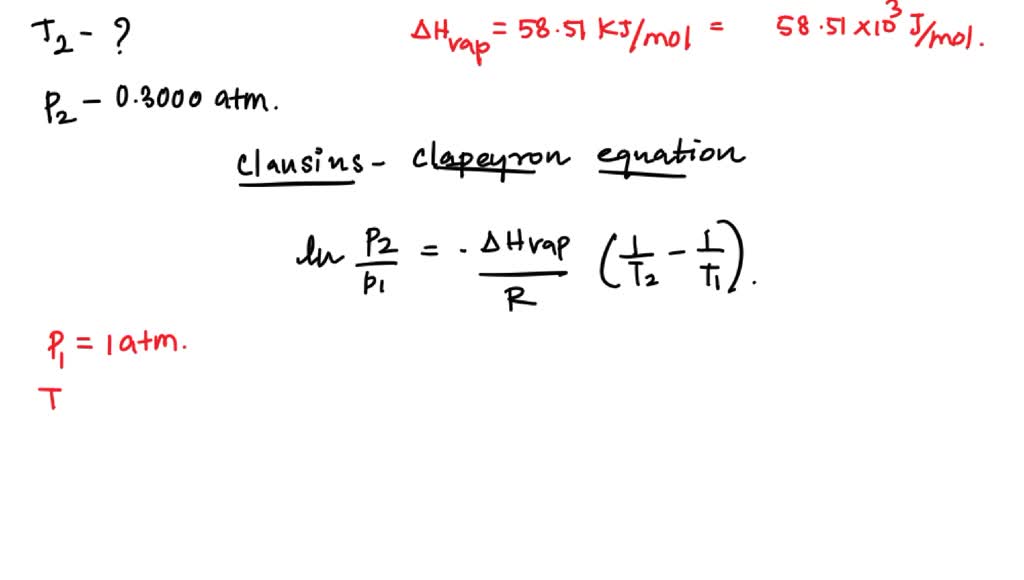 T₂ - ?
ΔHvap = 58.51 KJ/mol = 58.51 × 10³ J/mol.
P₂ - 0.3000 atm.
Clausins - Clapeyron equation
ln P₂/P₁ = - ΔHvap/R (1/T₂ - 1/T₁).
P₁ = 1 atm.
T